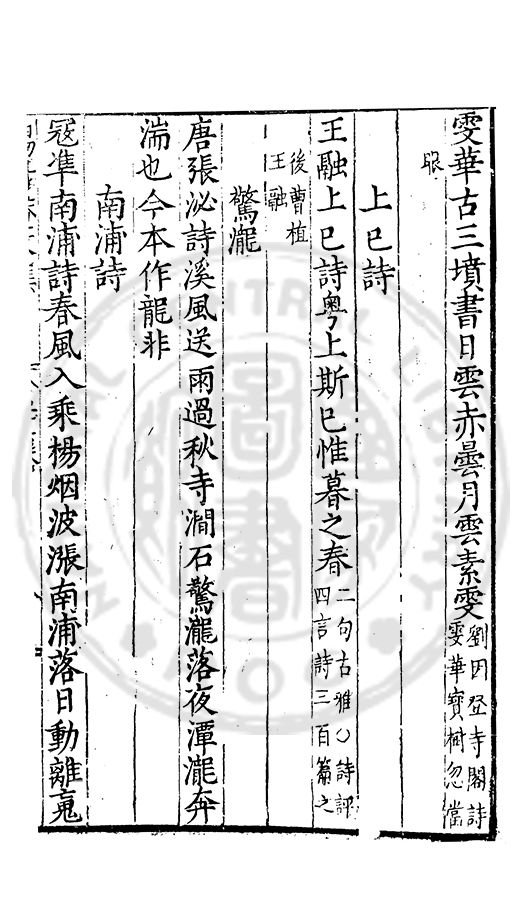 雯華古三墳書日雲赤曇月雲素雯劉因登寺閣詩雯華寶樹忽當
眼
上巳詩
王融上巳詩粤上斯巳惟暮之春二句古雅○詩評四言詩三百篇之
後曹植王融
驚瀧
唐張泌詩溪風送雨過秋寺澗石驚瀧落夜潭瀧奔
湍也今本作龍非
南浦詩
冦準南浦詩春風入乘楊烟波漲南浦落日動離䰟